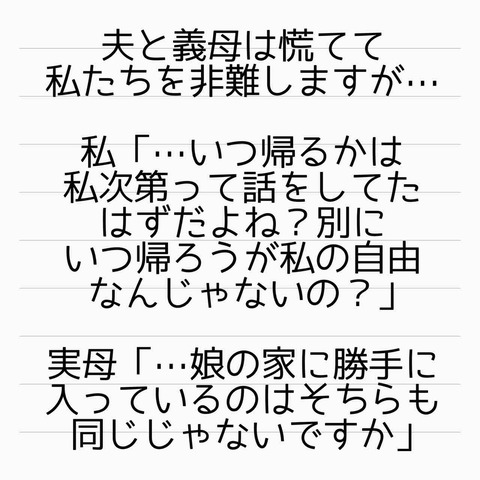 夫と義母は慌てて
私たちを非難しますが…
私「…いつ帰るかは
私次第って話をしてた
はずだよね？別に
いつ帰ろうが私の自由
なんじゃないの？」
実母「…娘の家に勝手に
入っているのはそちらも
同じじゃないですか」